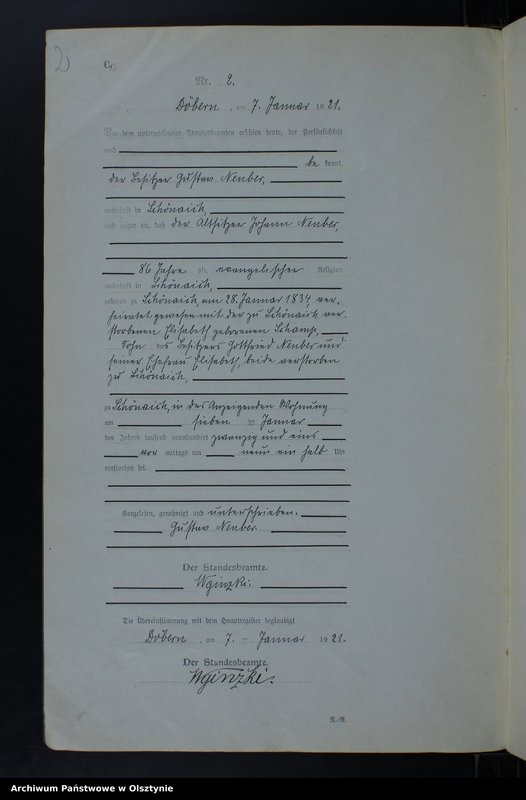 2
C.
Nr. 2.
Döbern, am 7. Januar 1921.
Vor dem unterzeichneten Standesbeamten erschien heute, der Persönlichkeit
nach
be kannt,
der Besitzer Gustav Neuber,
wohnhaft in Schönaich,
und zeigte an, daß der Altsitzer Johann Neuber,
86 Jahre alt, evangelischer Religion,
wohnhaft in Schönaich,
geboren zu Schönaich, am 28. Januar 1834 ver-
heiratet gewesen mit der zu Schönaich ver-
storbenen Elisabeth geborenen Schamp,
Sohn des Besitzers Gottfried Neuber und
seiner Ehefrau Elisabeth, beide verstorben
zu Schönaich,
zu Schönaich, in des Anzeigenden Wohnung
am sieben ten Januar
des Jahres tausend neunhundert zwanzig und eins
vor mittags um neun ein halb Uhr
verstorben sei.
Vorgelesen, genehmigt und unterschrieben.
Gustav Neuber.
Der Standesbeamte.
Wginzki.
Die Übereinstimmung mit dem Hauptregister beglaubigt
Döbern, am 7. ten Januar 1921.
Der Standesbeamte.
Wginzki.
N.-R.
Archiwum Państwowe w Olsztynie